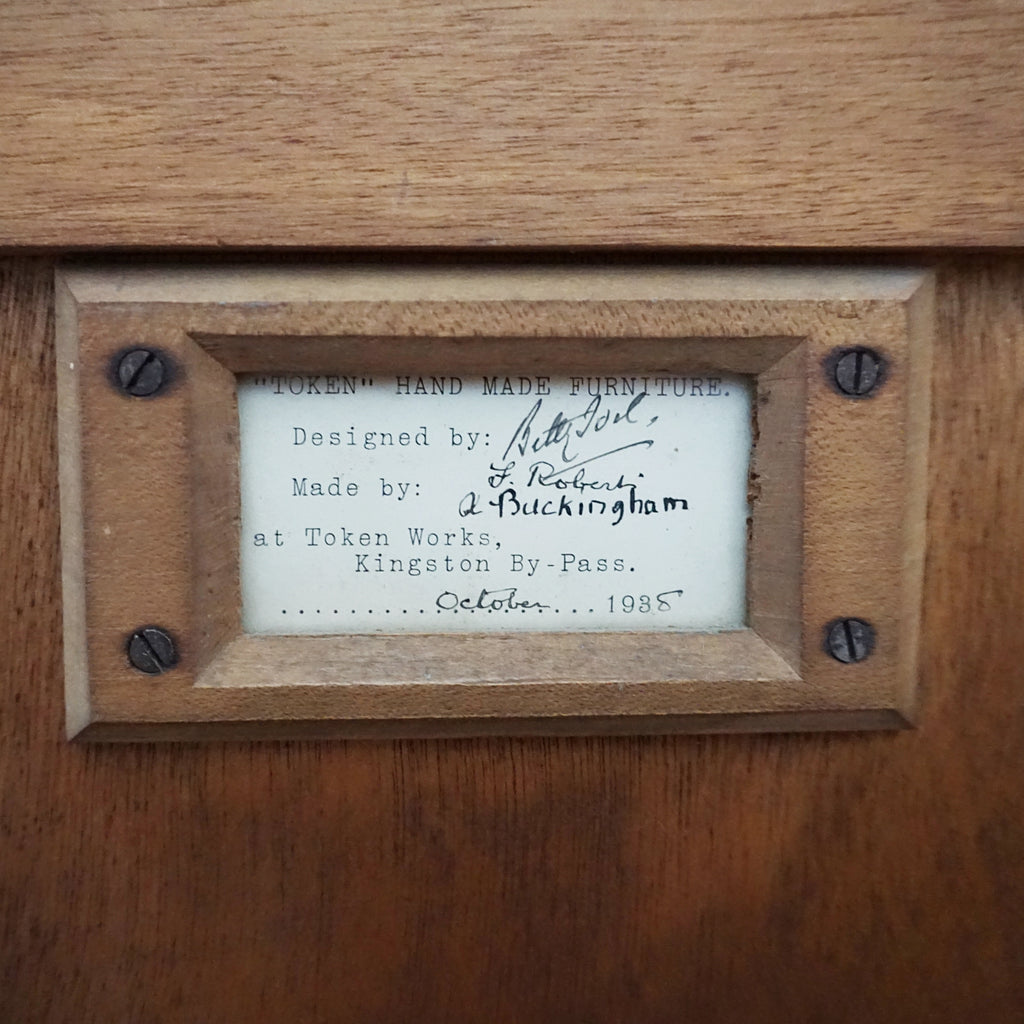 "TOKEN" HAND MADE FURNITURE.
Designed by: Betty Joel.
Made by: F. Roberts
A Buckingham
at Token Works,
Kingston By-Pass.
..........October...1935